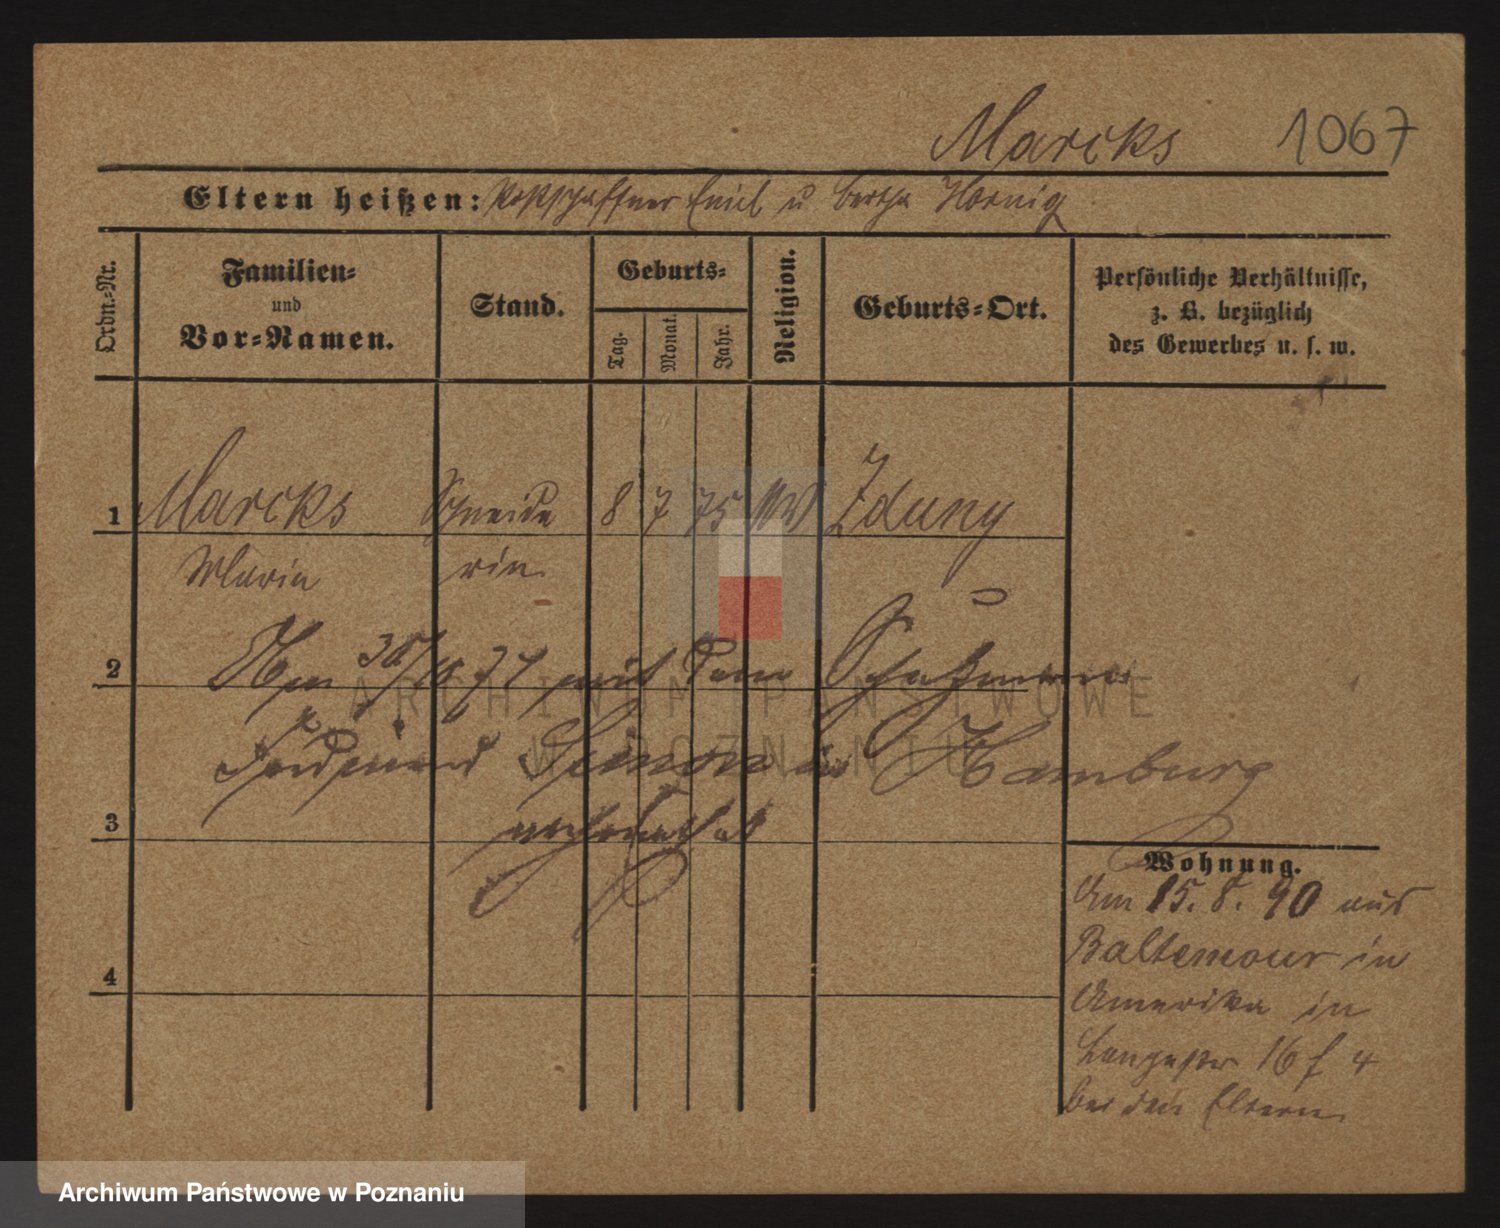 Marcks 1067
Eltern heißen: Postschaffner Emil u Bertha Hornig
Ordn.-Nr.
Familien-
und
Vor-Namen.
Stand.
Geburts-
Tag.
Monat.
Jahr.
Religion.
Geburts-Ort.
Persönliche Verhältnisse,
z. B. bezüglich
des Gewerbes u. s. w.
1 Marcks Schneide 8 7 75 Zduny
Maria rin
2 mit dem
Ferdinand Simon in Hamburg
3 verheirathet
4
Wohnung.
Am 15. 8. 90 aus
Baltemour in
Amerika in
Langestr 16 f 4
bei den Eltern
ARCHIWUM PAŃSTWOWE
W POZNANIU
Archiwum Państwowe w Poznaniu